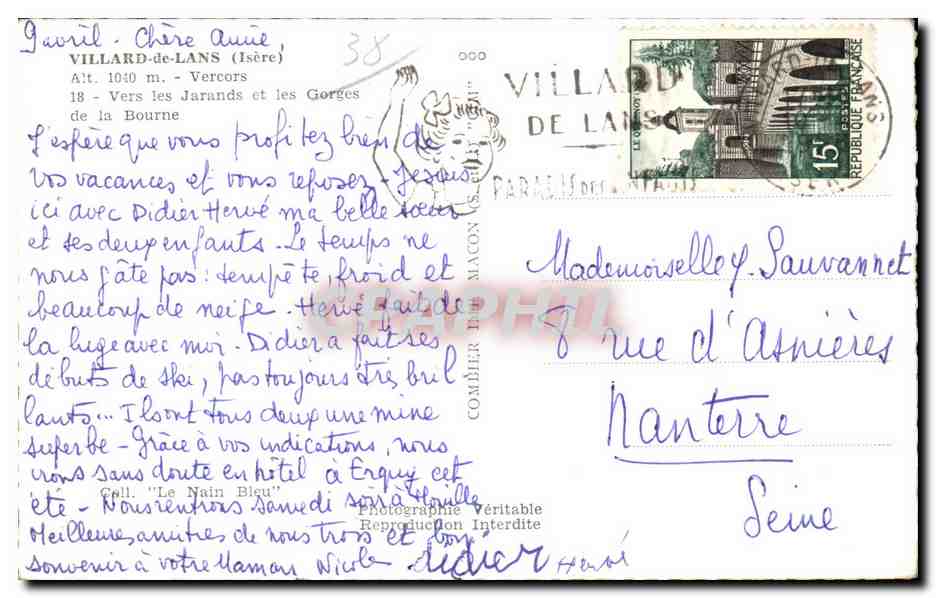 9 avril - Chère Annie,
VILLARD-de-LANS (Isère)
Alt. 1040 m. - Vercors
18 - Vers les Jarands et les Gorges
de la Bourne
38
J'espère que vous profitez bien de
vos vacances et vous reposez - Je suis
ici avec Didier Hervé ma belle sœur
et ses deux enfants. Le temps ne
nous gâte pas : tempête, froid et
beaucoup de neige. Hervé fait de
la luge avec moi. Didier a fait ses
débuts de ski, pas toujours très bril-
lants... Ils ont tous deux une mine
superbe - Grâce à vos indications, nous
irons sans doute en hôtel à Erquy cet
été - Nous rentrons samedi soir à Houille
Coll. "Le Nain Bleu"
Photographie Véritable
Reproduction Interdite
Meilleures amitiés de nous trois et bon
souvenir à votre Maman Nicole
Didier Hervé
COMBIER IMP. MACON
VILLARD
DE LANS
PARADIS DES ENFANTS
15F
POSTES
REPUBLIQUE FRANÇAISE
LE QUESNOY
Mademoiselle Y. Sauvannet
8 rue d'Asnières
Nanterre
Seine
CPAPHIL